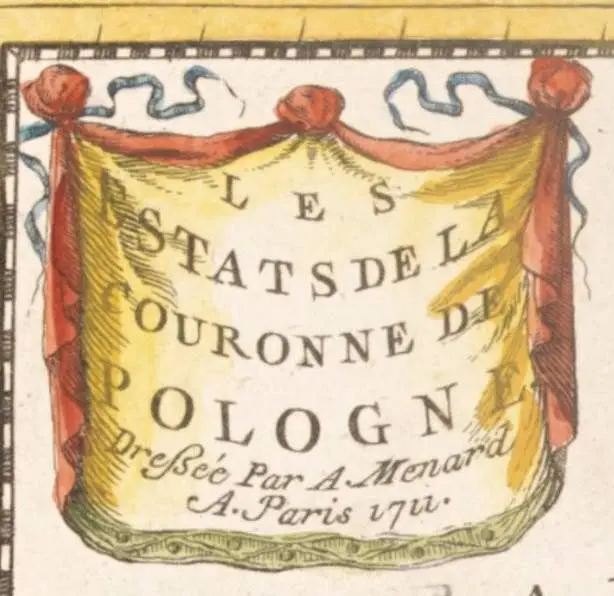 LES
ESTATS DE LA
COURONNE DE
POLOGNE
Dresseé Par A. Menard
A. Paris 1711.